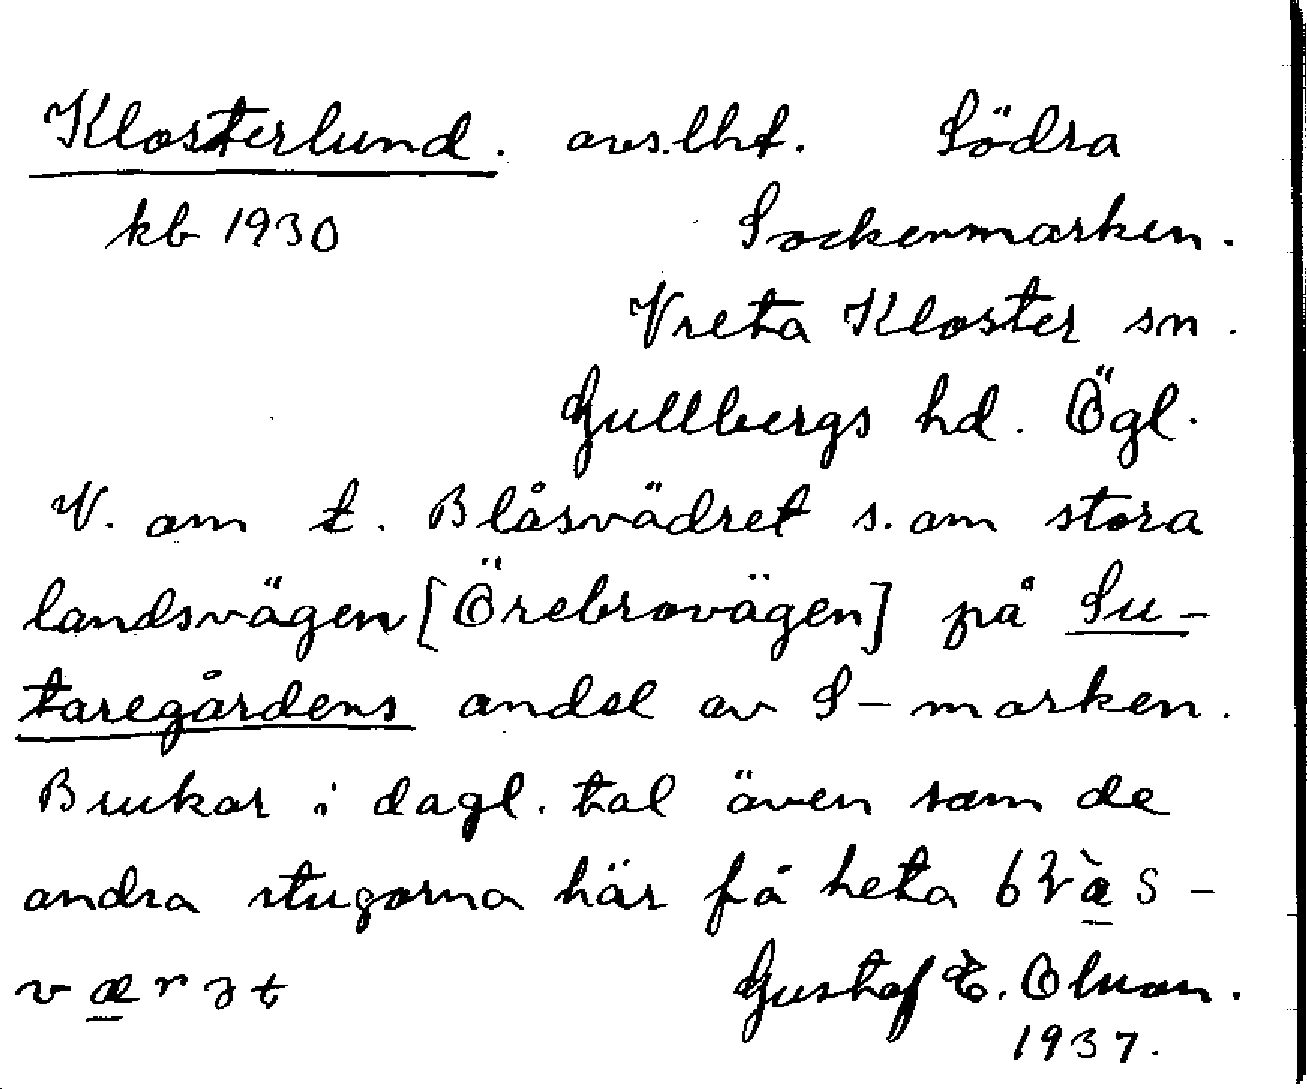 Klosterlund. avs.lht. Södra
kb 1930 Sockenmarken.
Vreta Kloster sn.
Gullbergs hd. Ögl.
V. om t. Blåsvädret s. om stora
landsvägen [Örebrovägen] på Su-
taregårdens andel av S-marken.
Brukar i dagl. tal även som de
andra stugorna här få heta
Gustaf E. Olson.
1937.